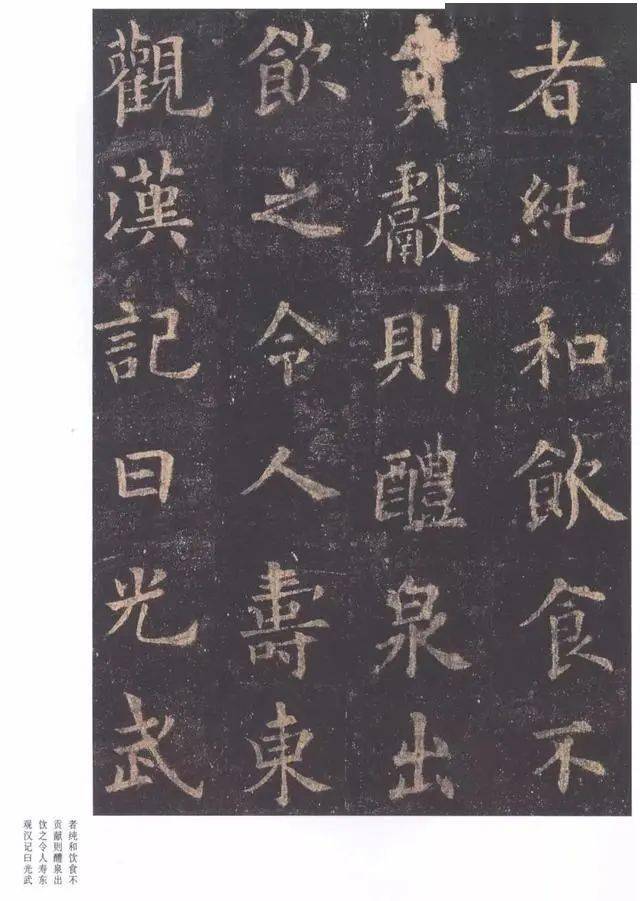 者純和飲食不
貢獻則醴泉出
飲之令人壽東
觀漢記曰光武
者纯和饮食不
贡献则醴泉出
饮之令人寿东
观汉记曰光武